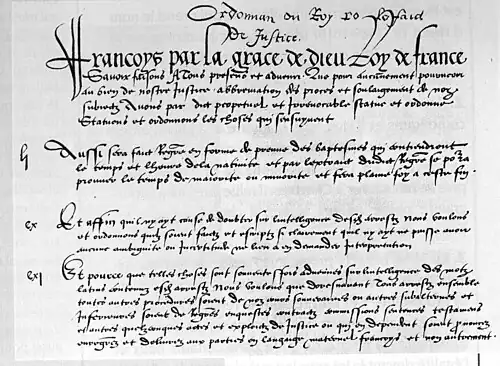 Ordonnan du Roy
De Justice.
Francoys par la grace de dieu Roy de france
Savoir faisons a Tous presens et advenir Que pour aucunement pourveoir
au bien de nostre Justice abbreviation des proces et soulagement de noz
subiectz Avons par dict perpetuel et irrevocable statue et ordonne
Statuons et ordonnons les choses qui sensuyvent
Aussi sera faict Regre en forme de preuve des baptesmes qui contiendront
le temps et lheure de la nativite et par lextraict dudict Regre se po'ra
prouver le temps de maiorite ou minorite et fera plaine foy a ceste fin
cx Et affin quil ny ayt cause de doubter sur lintelligence desd arrestz Nous voulons
et ordonnons quilz soient faictz et escriptz si clairement quil ny ayt ne puisse avoir
aucune ambiguite ou incertitude ne lieu a en demander Interpretation
cxi Et pource que telles choses sont souvent advenues sur lintelligence des motz
latins contenuz esd arrestz Nous voulons que doresenavant Tous arrestz ensemble
toutes autres procedures soient de noz cours souveraines ou autres subalternes et
Inferieures soient de Regres enquestes contractz commissions sentences testamens
et autres quelzconques actes et exploictz de Justice ou qui en dependent soient pronocez
enregrez et delivrez aux parties en langaige maternel francoys et non autrement